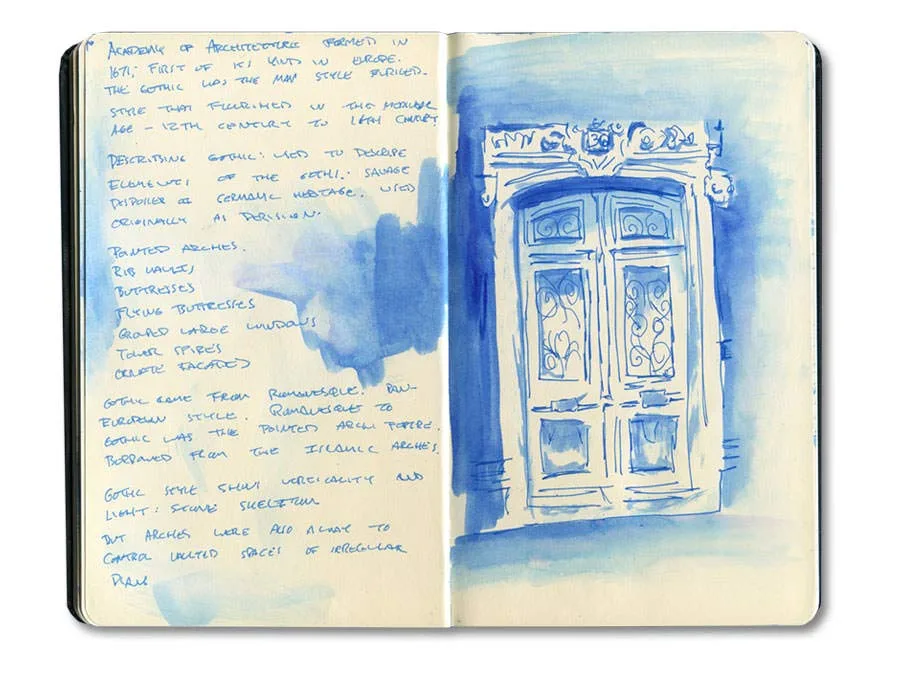 ACADEMY OF ARCHITECTURE FORMED IN
1671; FIRST OF ITS KIND IN EUROPE.
THE GOTHIC WAS THE MAIN STYLE
STYLE THAT FLOURISHED IN THE
AGE - 12TH CENTURY TO 16TH CENTURY
DESCRIBING GOTHIC: USED TO DESCRIBE
ELEMENTS OF THE GOTHS: SAVAGE
DESPOILER OF GERMANIC HERITAGE. USED
ORIGINALLY AS DERISION.
POINTED ARCHES.
RIB VAULTS
BUTTRESSES
FLYING BUTTRESSES
GROUPED LARGE WINDOWS
TOWER SPIRES
ORNATE FACADES
GOTHIC CAME FROM ROMANESQUE. PAN-
EUROPEAN STYLE. ROMANESQUE TO
GOTHIC WAS THE POINTED ARCH
BORROWED FROM THE ISLAMIC ARCHES.
GOTHIC STYLE VERTICALITY AND
LIGHT: STONE SKELETON
BUT ARCHES WERE ALSO A WAY TO
CONTROL VAULTED SPACES OF IRREGULAR
PLANS
36